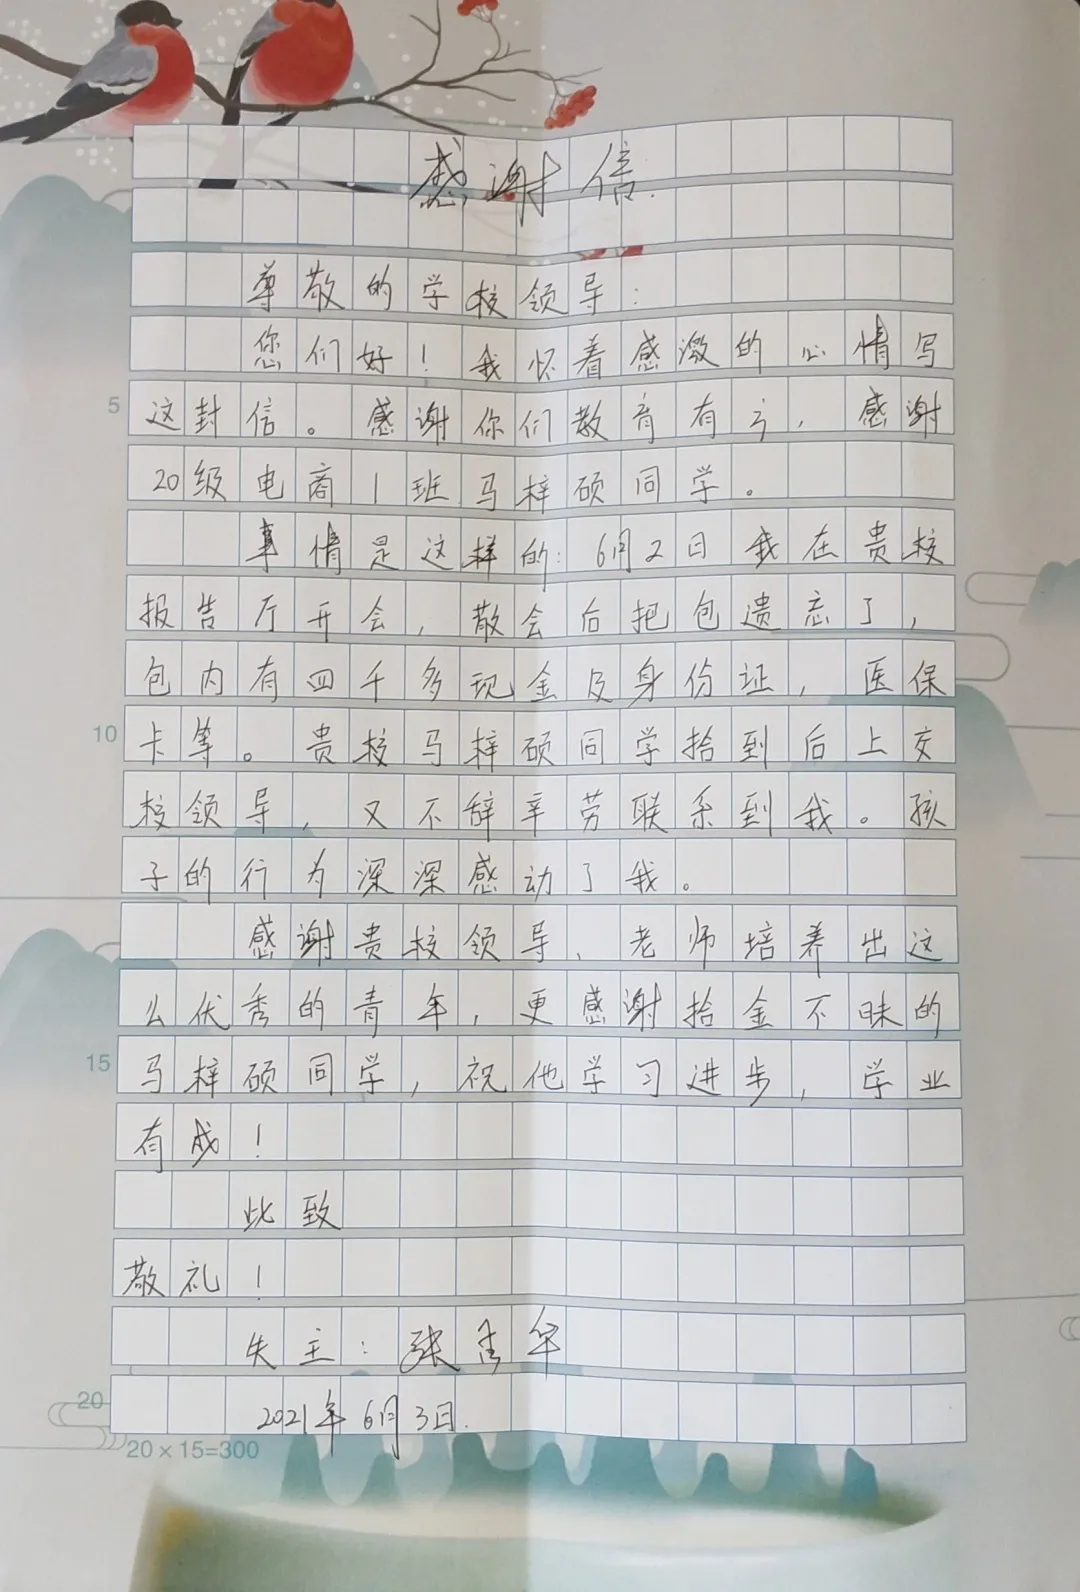 感谢信
尊敬的学校领导：
您们好！我怀着感激的心情写
5 这封信。感谢你们教育有方，感谢
20级电商1班马梓硕同学。
事情是这样的：6月2日我在贵校
报告厅开会，散会后把包遗忘了，
包内有四千多现金及身份证，医保
10 卡等。贵校马梓硕同学拾到后上交
校领导，又不辞辛劳联系到我。孩
子的行为深深感动了我。
感谢贵校领导、老师培养出这
么优秀的青年，更感谢拾金不昧的
15 马梓硕同学，祝他学习进步，学业
有成！
此致
敬礼！
失主：张 华
20 2021年6月3日.
20×15=300